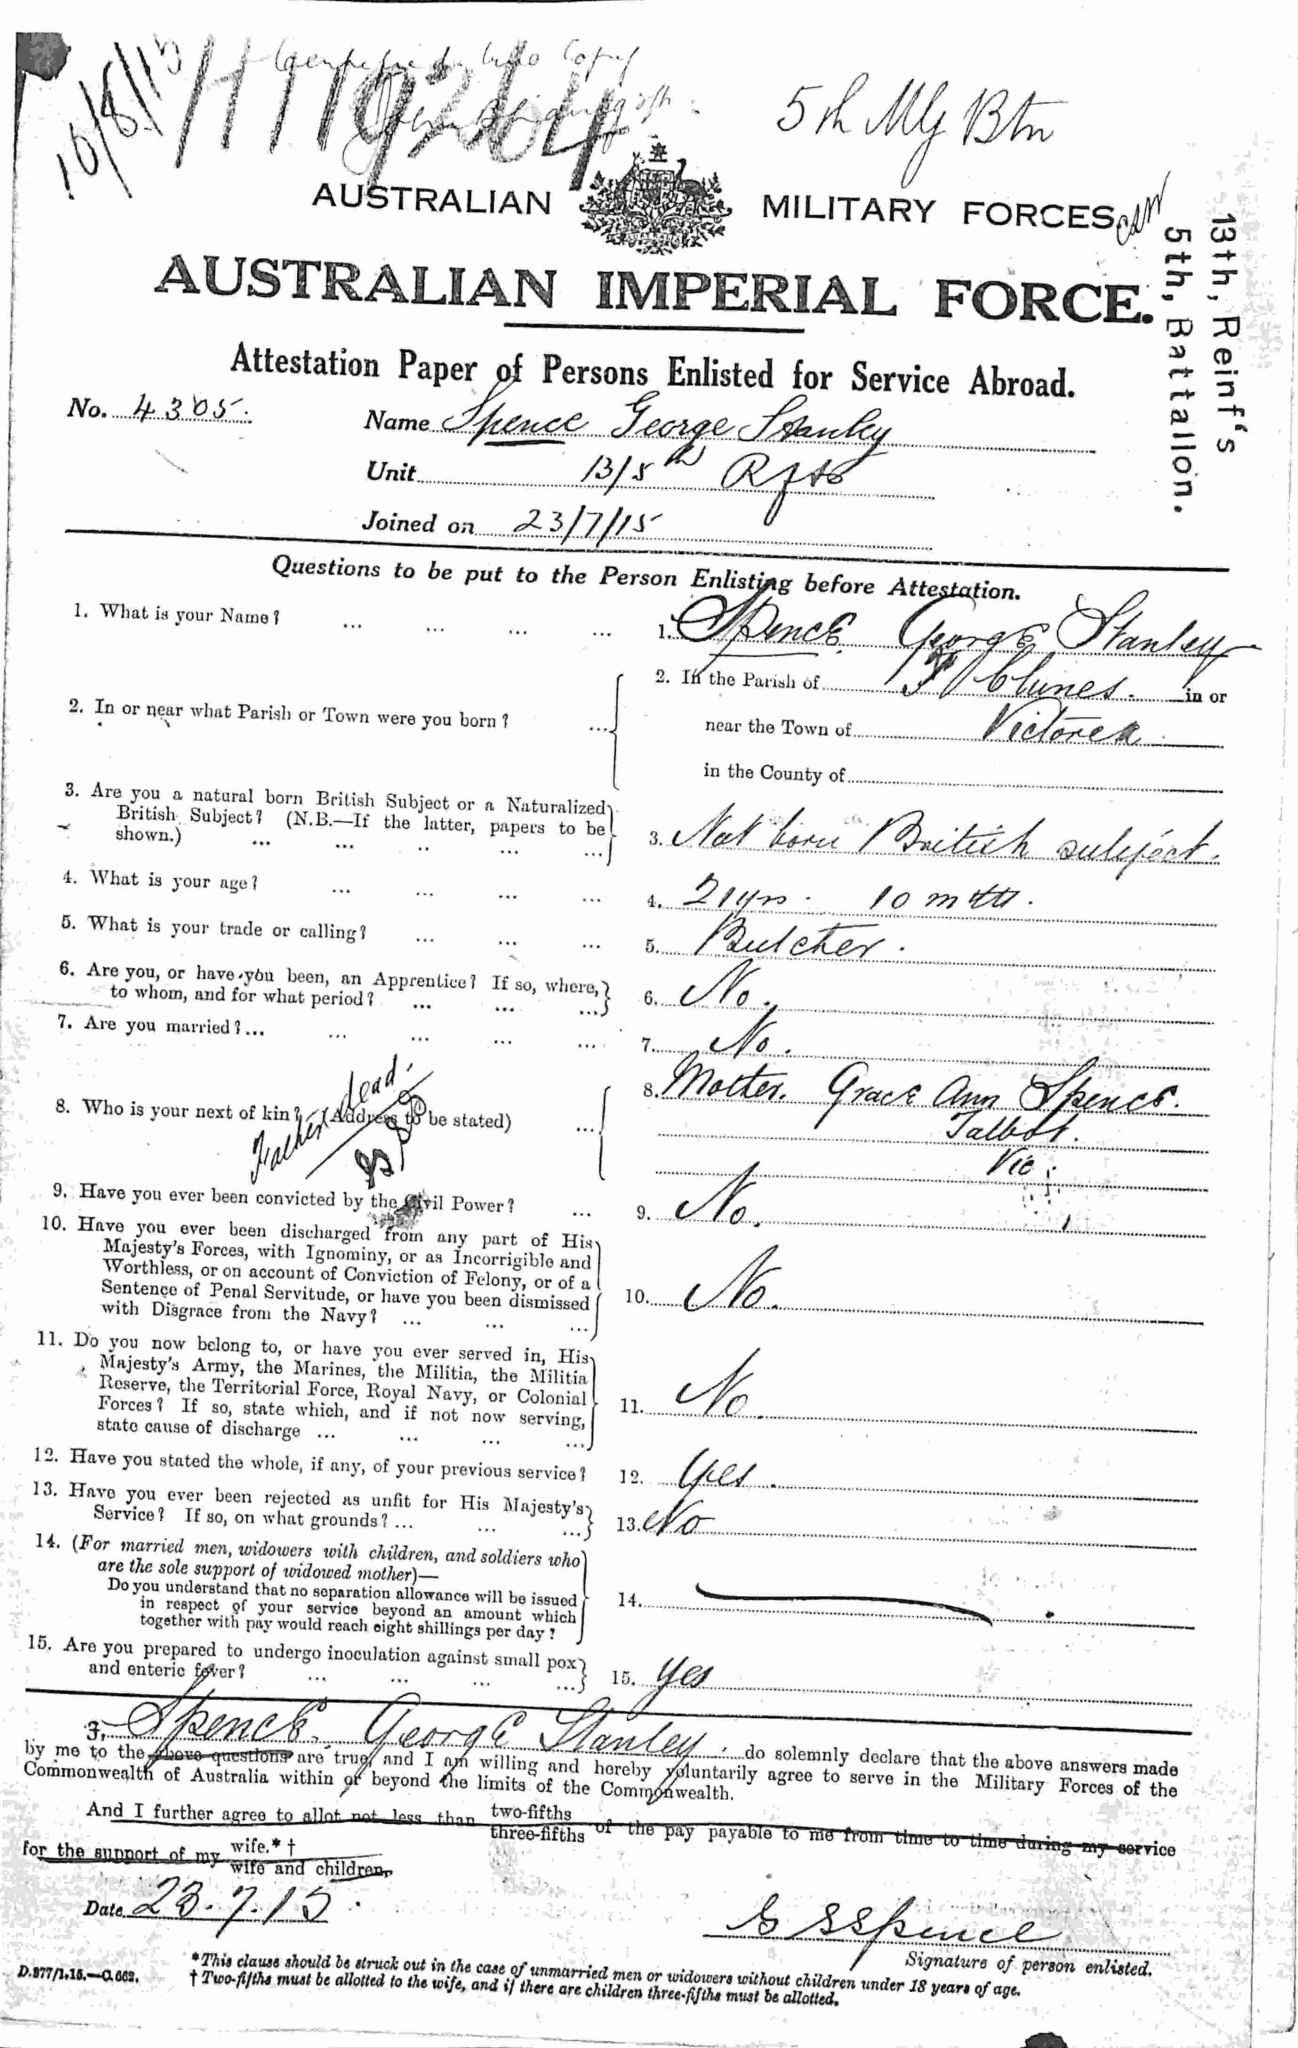 10/8/15
5th Mg Btn
AUSTRALIAN MILITARY FORCES
13th, Reinf's
5th, Battallon.
AUSTRALIAN IMPERIAL FORCE.
Attestation Paper of Persons Enlisted for Service Abroad.
No. 4305. Name Spence George Stanley
Unit 13/5th Rfts
Joined on 23/7/15
Questions to be put to the Person Enlisting before Attestation.
1. What is your Name? ... ... ... ... 1. Spence George Stanley
2. In or near what Parish or Town were you born? ... 2. In the Parish of Clunes. in or
near the Town of Victoria
in the County of
3. Are you a natural born British Subject or a Naturalized
British Subject? (N.B.—If the latter, papers to be
shown.) ... ... .. ... ... 3. Nat born British subject.
4. What is your age? ... ... ... ... 4. 21 yrs. 10 mths.
5. What is your trade or calling? ... ... ... 5. Butcher.
6. Are you, or have you been, an Apprentice? If so, where,
to whom, and for what period? ... ... ... 6. No.
7. Are you married?... ... ... ... ... 7. No.
8. Who is your next of kin? (Address to be stated) ... 8. Mother. Grace Ann Spence.
Talbot.
Vic.
Father dead.
9. Have you ever been convicted by the Civil Power? ... 9. No.
10. Have you ever been discharged from any part of His
Majesty's Forces, with Ignominy, or as Incorrigible and
Worthless, or on account of Conviction of Felony, or of a
Sentence of Penal Servitude, or have you been dismissed
with Disgrace from the Navy? ... ... ... 10. No.
11. Do you now belong to, or have you ever served in, His
Majesty's Army, the Marines, the Militia, the Militia
Reserve, the Territorial Force, Royal Navy, or Colonial
Forces? If so, state which, and if not now serving,
state cause of discharge ... ... ... ... 11. No.
12. Have you stated the whole, if any, of your previous service? 12. Yes.
13. Have you ever been rejected as unfit for His Majesty's
Service? If so, on what grounds? ... ... ... 13. No
14. (For married men, widowers with children, and soldiers who
are the sole support of widowed mother)—
Do you understand that no separation allowance will be issued
in respect of your service beyond an amount which
together with pay would reach eight shillings per day? 14.
15. Are you prepared to undergo inoculation against small pox
and enteric fever? ... ... ... ... 15. Yes
I, Spence. George Stanley. do solemnly declare that the above answers made
by me to the above questions are true, and I am willing and hereby voluntarily agree to serve in the Military Forces of the
Commonwealth of Australia within or beyond the limits of the Commonwealth.
And I further agree to allot not less than two-fifths three-fifths of the pay payable to me from time to time during my service
for the support of my wife.*† wife and children,
Date 23.7.15.
G S Spence
Signature of person enlisted.
D.877/1.15.—C.662.
*This clause should be struck out in the case of unmarried men or widowers without children under 18 years of age.
† Two-fifths must be allotted to the wife, and if there are children three-fifths must be allotted.